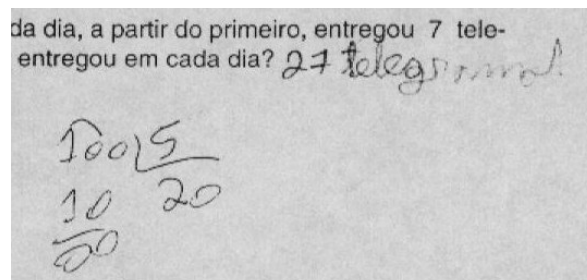 da dia, a partir do primeiro, entregou 7 tele-
entregou em cada dia? 27 telegramas
100 5
10 20
00